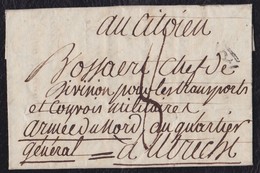 au Citoien
Bossaert Chef de
Divizion pour les transports
et Convois militaires
armée du Nord au quartier
général = à Utrecht
8